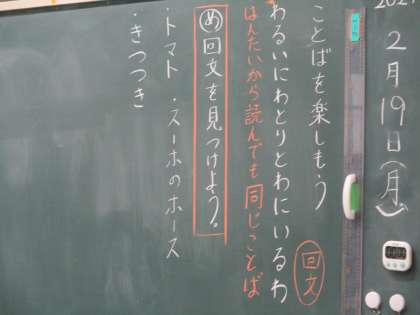 2月19日(月)
ことばを楽しもう
回文
わるいにわとりとわにいるわ
はんたいから読んでも同じことば
め 回文を見つけよう。
・トマト ・スーホのホース
・きつつき